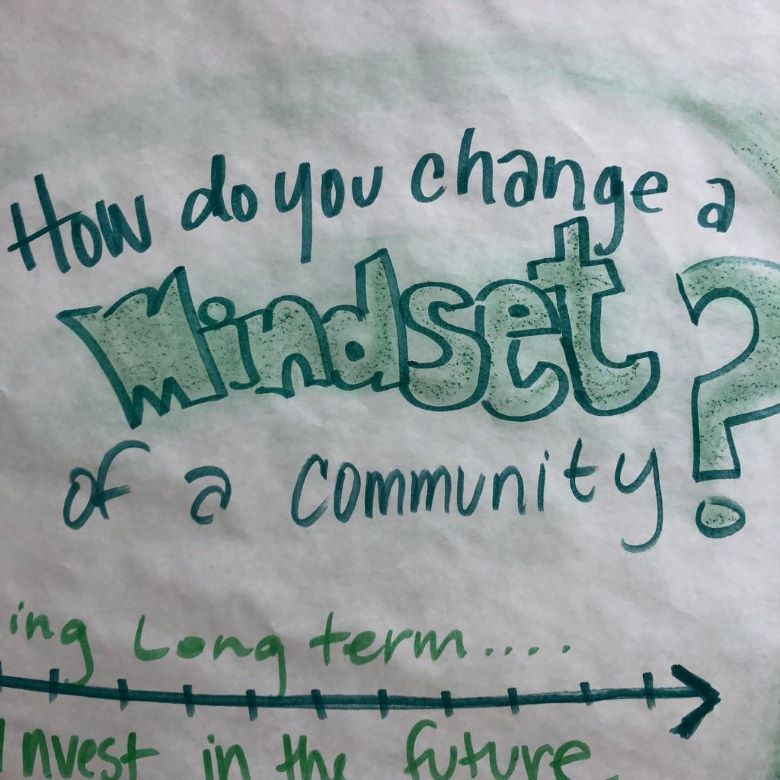 How do you change a
Mindset?
of a community
ing Long term....
Invest in the future